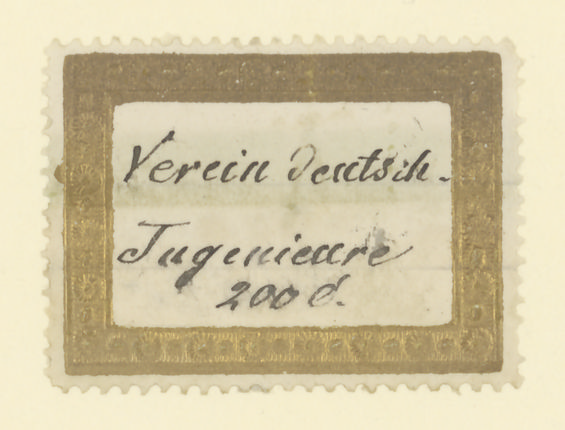 Verein deutsch.
Ingenieure
200 d.